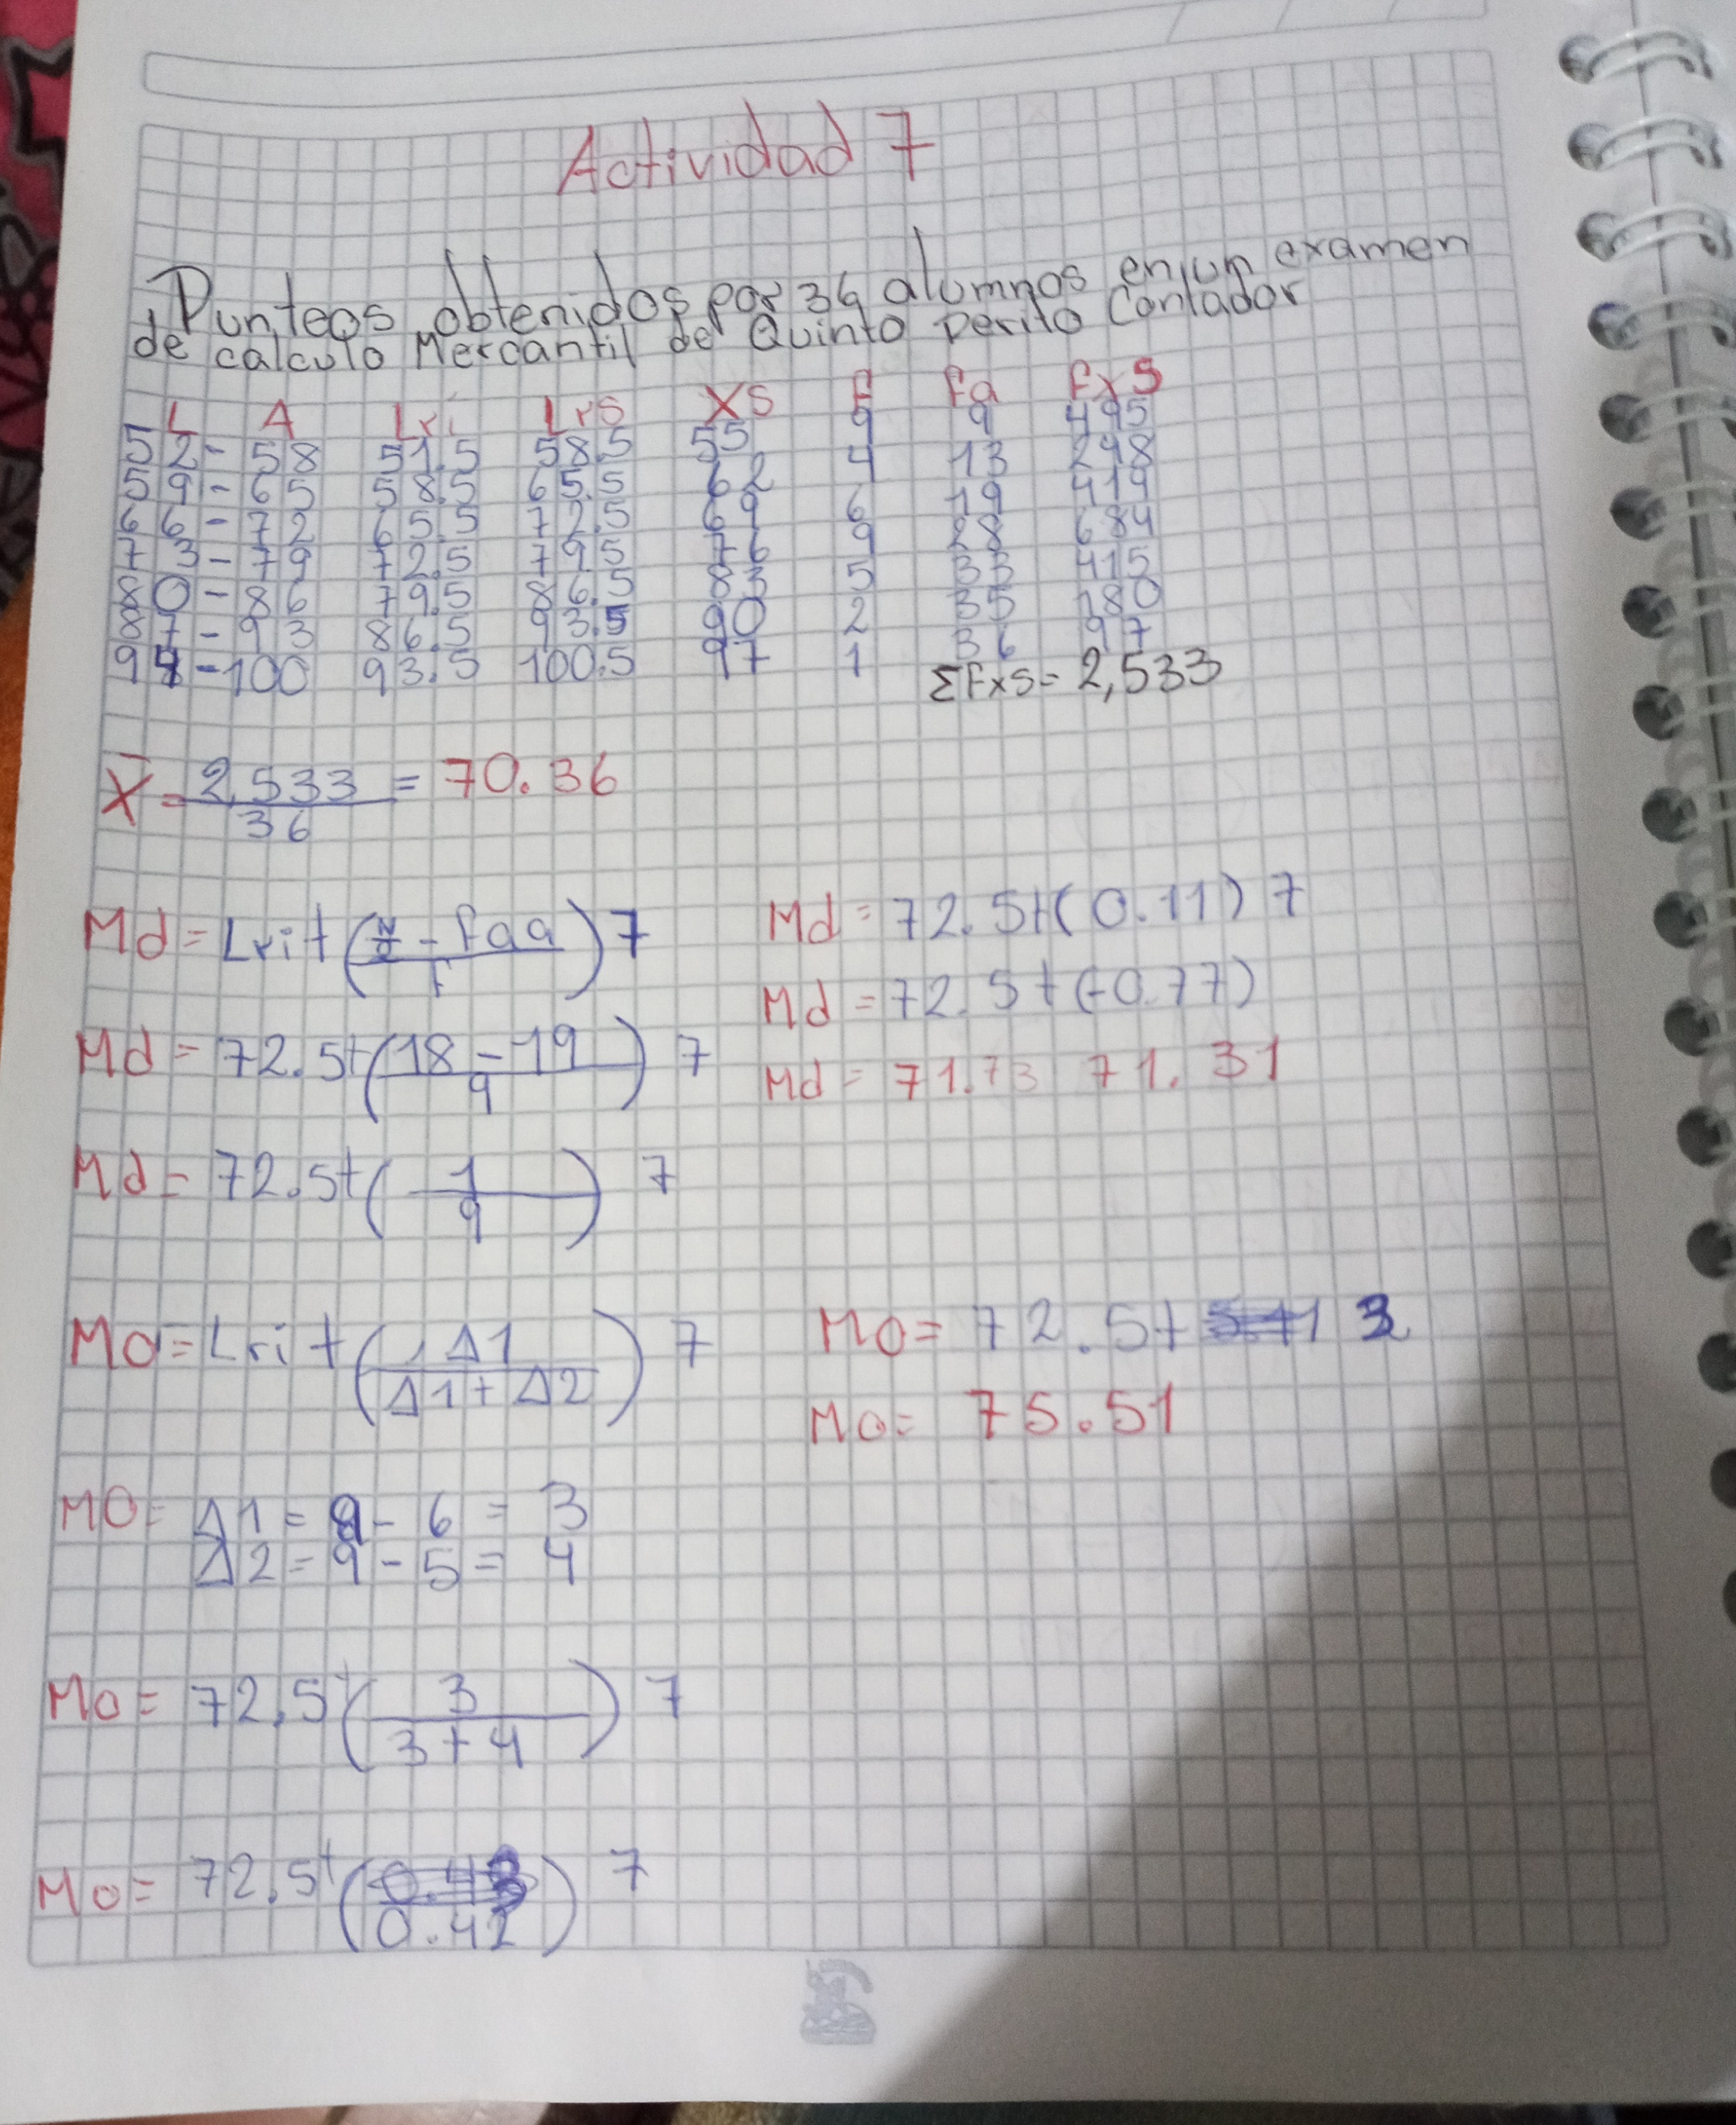 Actividad 7
Punteos obtenidos por 36 alumnos en un examen
de calculo Mercantil de Quinto Perito Contador
L A Lri Lrs XS F Fa FxS
52-58 51.5 58.5 55 9 9 495
59-65 58.5 65.5 62 4 13 248
66-72 65.5 72.5 69 6 19 414
73-79 72.5 79.5 76 9 28 684
80-86 79.5 86.5 83 5 33 415
87-93 86.5 93.5 90 2 35 180
94-100 93.5 100.5 97 1 36 97
ΣFxS= 2,533
X̄ = 2,533 / 36 = 70.36
Md = Lri + (N/2 - Faa / F) 7
Md = 72.5+(18-19 / 9) 7
Md = 72.5+(1 / 9) 7
Md = 72.5+(0.11) 7
Md = 72.5+(-0.77)
Md = 71.73 71.31
Mo = Lri + (Δ1 / Δ1+Δ2) 7
MO= Δ1 = 9 - 6 = 3
Δ2 = 9 - 5 = 4
Mo = 72.5+(3 / 3+4) 7
Mo = 72.5+(0.42) 7
Mo = 72.5+ 3
Mo = 75.51